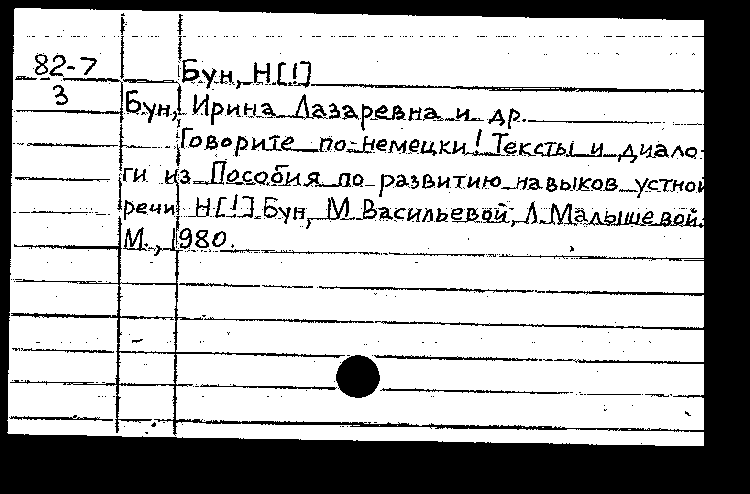 82-7 Бун, Н[!]
3 Бун, Ирина Лазаревна и др.
Говорите по-немецки! Тексты и диало-
ги из Пособия по развитию навыков устной
речи Н[!] Бун, М Васильевой, Л. Малышевой.
М., 1980.